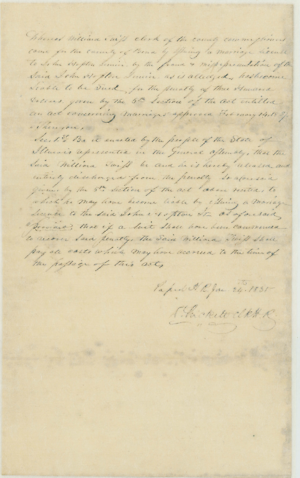 Whereas William Swift clerk of the county commissioners
court for the county of by issuing a marriage license
to John Sexton Junior by the fraud & misrepresentation of the
Said John Sexton Junior as is alledged, has become
liable to be Sued, for the penalty of three Hundred
dollars given by the 5th Section of the act entitled
an act concerning marriages approved
Sec 1st Be it enacted by the people of the State of
Illinois represented in the General assembly, that the
Said William Swift be and he is hereby released and
entirely discharged from the penalty So
given by the 5th Section of the act above recited to
which he may have become liable by issuing a marriage
license to the Said John Sexton Jr. as aforesaid,
provided that if a Suit Shall have been commenced
to recover Said penalty the Said William Swift Shall
pay all costs which may have accrued to the time of
the passage of this act.
Passed H. R. Jan. 24th 1835
D. Prickett Clk H. R.